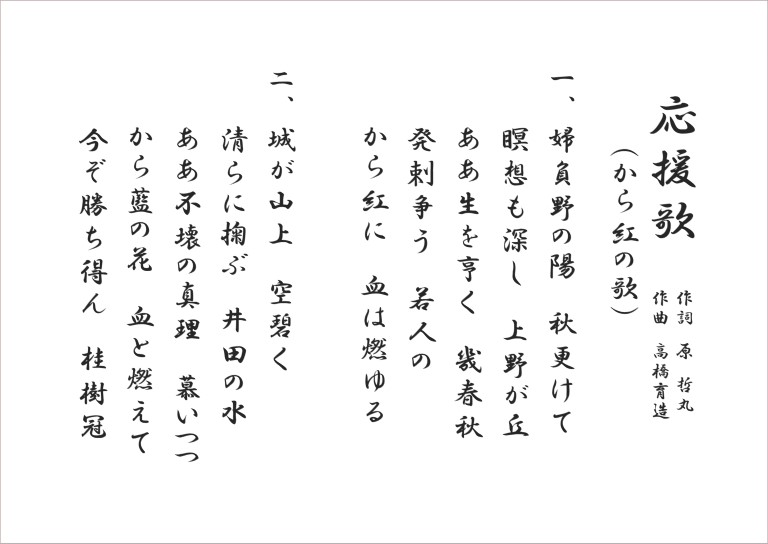 応援歌
(から紅の歌)
作詞 原 哲丸
作曲 高橋育造
一、婦負野の陽 秋更けて
瞑想も深し 上野が丘
ああ生を亨く 幾春秋
発刺争う 若人の
から紅に 血は燃ゆる
二、城が山上 空碧く
清らに掬ぶ 井田の水
ああ不壊の真理 慕いつつ
から藍の花 血と燃えて
今ぞ勝ち得ん 桂樹冠